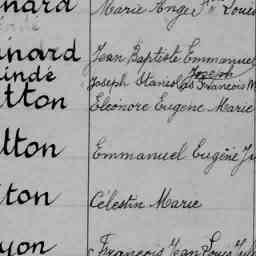 nard Marie Ange Louis
inard Jean Baptiste Emmanuel
indé Joseph
Joseph Stanislas François M
tton Eléonore Eugène Marie
lton Emmanuel Eugène J
ton Célestin Marie
yon François Jean Louis